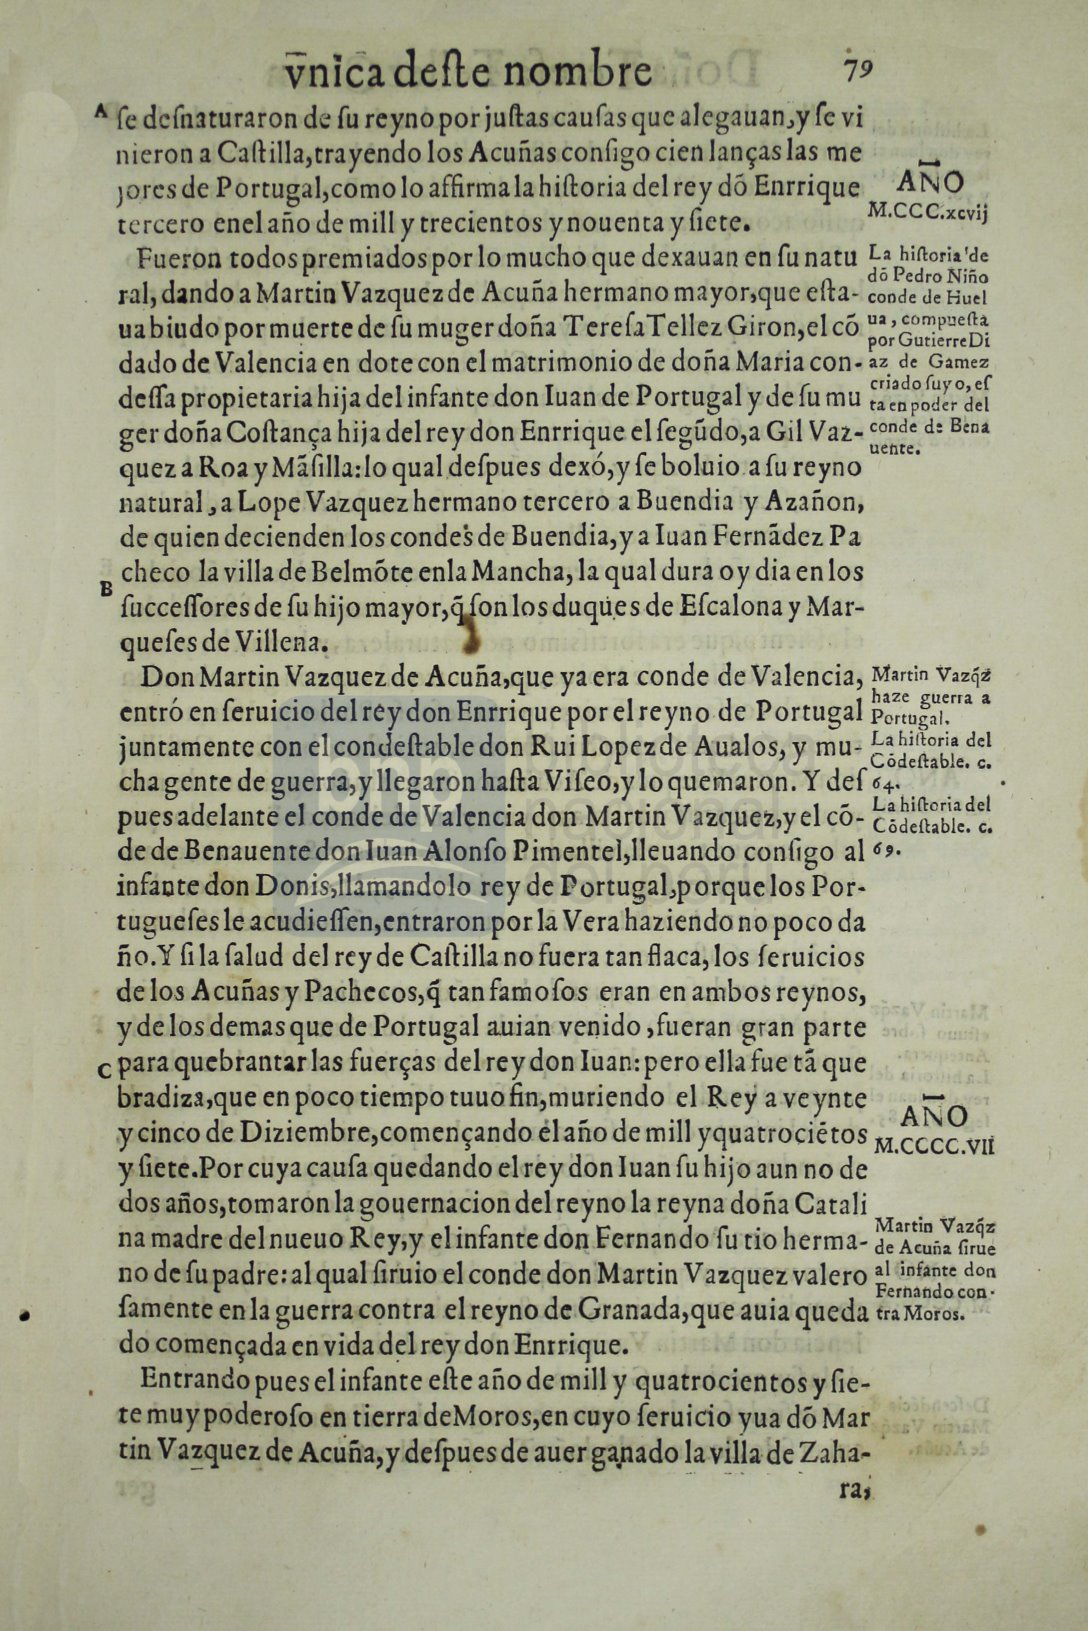 v̄nica deſte nombre 79
A ſe deſnaturaron de ſu reyno por juſtas cauſas que alegauan, y ſe vi
nieron a Caſtilla, trayendo los Acuñas conſigo cien lanças las me
jores de Portugal, como lo affirma la hiſtoria del rey dō Enrrique
tercero enel año de mill y trecientos y nouenta y ſiete.
AÑO
M.CCC.xcvij
Fueron todos premiados por lo mucho que dexauan en ſu natu
ral, dando a Martin Vazquez de Acuña hermano mayor, que eſta-
ua biudo por muerte de ſu muger doña Tereſa Tellez Giron, el cō
dado de Valencia en dote con el matrimonio de doña Maria con-
deſſa propietaria hija del infante don Iuan de Portugal y de ſu mu
ger doña Coſtança hija del rey don Enrrique el ſegūdo, a Gil Vaz-
quez a Roa y Māſilla: lo qual deſpues dexó, y ſe boluio a ſu reyno
natural, a Lope Vazquez hermano tercero a Buendia y Azañon,
de quien decienden los condes de Buendia, y a Iuan Fernādez Pa
checo la villa de Belmōte enla Mancha, la qual dura oy dia en los
B ſucceſſores de ſu hijo mayor, q̄ ſon los duques de Eſcalona y Mar-
queſes de Villena.
La hiſtoria de
dō Pedro Niño
conde de Huel
ua, compueſta
por Gutierre Di
az de Gamez
criado ſuyo, eſ
ta en poder del
conde de Bena
uente.
Don Martin Vazquez de Acuña, que ya era conde de Valencia,
entró en ſeruicio del rey don Enrrique por el reyno de Portugal
juntamente con el condeſtable don Rui Lopez de Aualos, y mu-
cha gente de guerra, y llegaron haſta Viſeo, y lo quemaron. Y deſ
pues adelante el conde de Valencia don Martin Vazquez, y el cō-
de de Benauente don Iuan Alonſo Pimentel, lleuando conſigo al
infante don Donis, llamandolo rey de Portugal, porque los Por-
tugueſes le acudieſſen, entraron por la Vera haziendo no poco da
ño. Y ſi la ſalud del rey de Caſtilla no fuera tan flaca, los ſeruicios
de los Acuñas y Pachecos, q̄ tan famoſos eran en ambos reynos,
y de los demas que de Portugal auian venido, fueran gran parte
C para quebrantar las fuerças del rey don Iuan: pero ella fue tā que
bradiza, que en poco tiempo tuuo fin, muriendo el Rey a veynte
y cinco de Diziembre, començando el año de mill y quatrociētos
y ſiete. Por cuya cauſa quedando el rey don Iuan ſu hijo aun no de
dos años, tomaron la gouernacion del reyno la reyna doña Catali
na madre del nueuo Rey, y el infante don Fernando ſu tio herma-
no de ſu padre: al qual ſiruio el conde don Martin Vazquez valero
ſamente en la guerra contra el reyno de Granada, que auia queda
do començada en vida del rey don Enrrique.
Martin Vazq̄z
haze guerra a
Portugal.
La hiſtoria del
Cōdeſtable. c.
64.
La hiſtoria del
Cōdeſtable. c.
69.
AÑO
M.CCCC.VII
Martin Vazq̄z
de Acuña ſirue
al infante don
Fernando con-
tra Moros.
Entrando pues el infante eſte año de mill y quatrocientos y ſie-
te muy poderoſo en tierra de Moros, en cuyo ſeruicio yua dō Mar
tin Vazquez de Acuña, y deſpues de auer ganado la villa de Zaha-
ra,